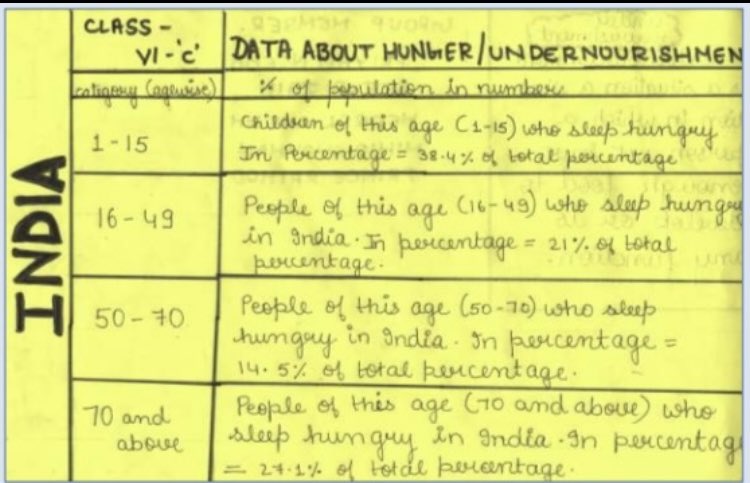 CLASS -
VI - 'C'
DATA ABOUT HUNGER/UNDERNOURISHMEN
catigory (agewise)
% of population in numbers
1 - 15
Children of this age (1-15) who sleep hungry
In Percentage = 38.4% of total percentage
INDIA
16 - 49
People of this age (16-49) who sleep hungry
in India. In percentage = 21% of total
percentage.
50 - 70
People of this age (50-70) who sleep
hungry in India. In percentage =
14.5% of total percentage.
70 and
above
People of this age (70 and above) who
sleep hungry in India. In percentag
= 27.1% of total percentage.